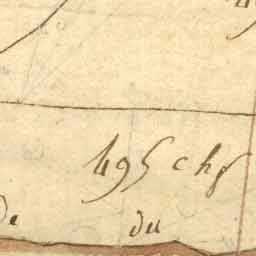 495 chg
de du